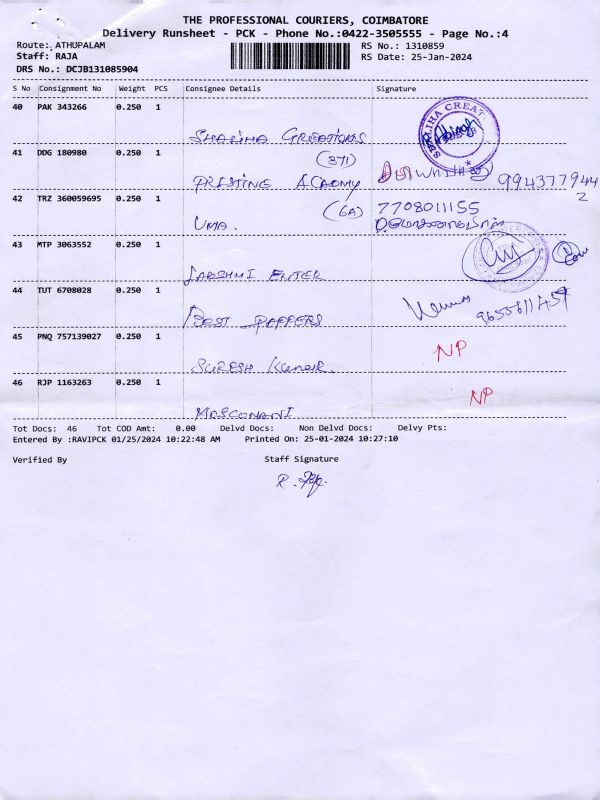 THE PROFESSIONAL COURIERS, COIMBATORE
Delivery Runsheet - PCK - Phone No.:0422-3505555 - Page No.:4
Route: ATHUPALAM
RS No.: 1310859
Staff: RAJA
RS Date: 25-Jan-2024
DRS No.: DCJB131085904
S No Consignment No Weight PCS Consignee Details Signature
40 PAK 343266 0.250 1
SHALIHA CREATIONS
SHALIHA CREAT
41 DDG 180980 0.250 1
(371)
PRISTINE ACADMY
9943779442
42 TRZ 360059695 0.250 1
(6A)
7708011155
UMA.
43 MTP 3063552 0.250 1
LAKSHMI ENTER
44 TUT 6708028 0.250 1
BEST PAPPERS
9655811457
45 PNQ 757139027 0.250 1
NP
SURESH Kumar
46 RJP 1163263 0.250 1
NP
Tot Docs: 46 Tot COD Amt: 0.00 Delvd Docs: Non Delvd Docs: Delvy Pts:
Entered By :RAVIPCK 01/25/2024 10:22:48 AM Printed On: 25-01-2024 10:27:10
Verified By Staff Signature